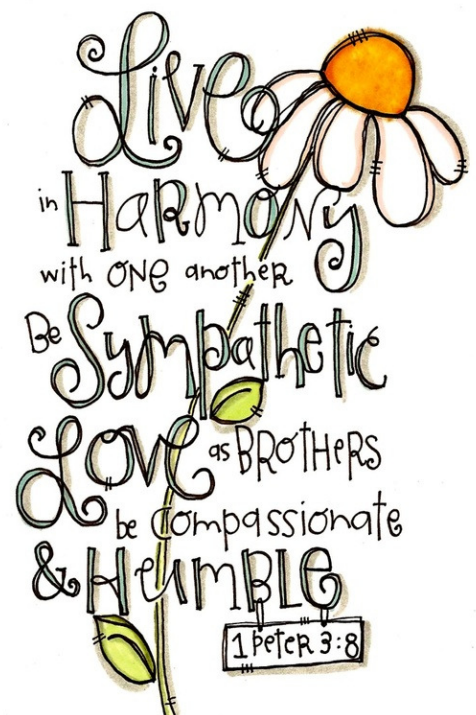 Live
in HaRmoNy
with ONe another
Be Sympathetic
Love as BROtHeRs
be compassionate
& HumBLe
1 PeteR 3:8